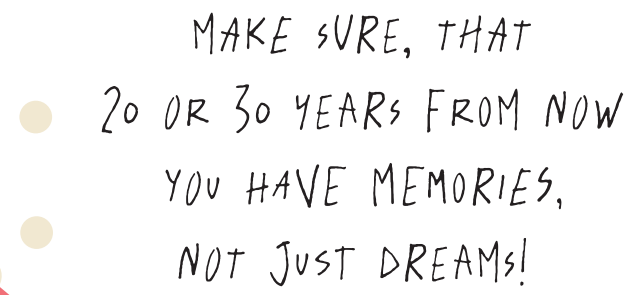 MAKE SURE, THAT
20 OR 30 YEARS FROM NOW
YOU HAVE MEMORIES,
NOT JUST DREAMS!